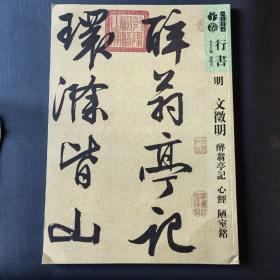 行書
明
文徵明
醉翁亭記 心經 陋室銘
醉翁亭記
環滁皆山